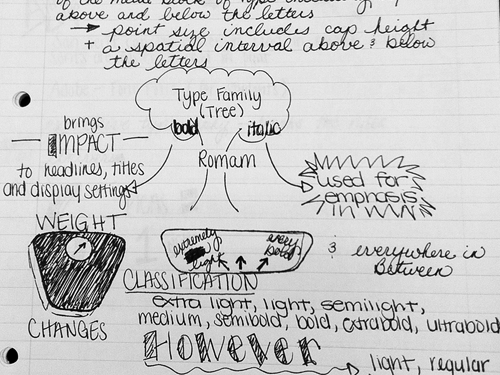 of the metal block of type including
above and below the letters
→ point size includes cap height
+ a spatial interval above & below
the letters
Type Family
(Tree)
bold italic
Romam
brings
IMPACT
to headlines, titles
and display settings
used for
emphasis
WEIGHT
CHANGES
extremely
light
every
bold
& everywhere in
between
CLASSIFICATION
extra light, light, semilight,
medium, semibold, bold, extrabold, ultrabold
However
light, regular